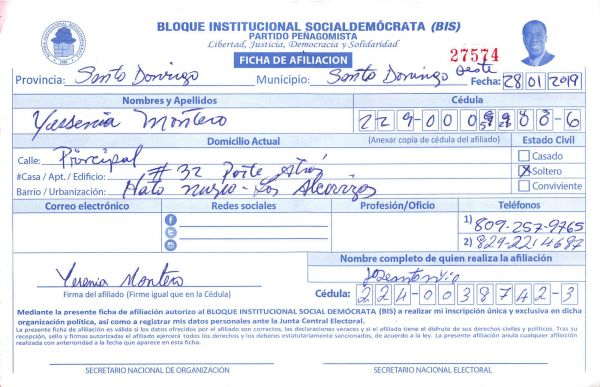 BLOQUE INSTITUCIONAL SOCIALDEMÓCRATA (BIS)
PARTIDO PEÑAGOMISTA
Libertad, Justicia, Democracia y Solidaridad
FICHA DE AFILIACION
27574
Provincia: Santo Domingo Municipio: Santo Domingo oeste Fecha: 28 01 2019
Nombres y Apellidos Cédula
Yessenia Montero 229-000 988-6
Domicilio Actual (Anexar copia de cédula del afiliado) Estado Civil
Calle: Principal
Casado
#Casa / Apt. / Edificio: #32 Parte atrás
X Soltero
Barrio / Urbanización: Hato nuevo - Los Alcarrizos
Conviviente
Correo electrónico Redes sociales Profesión/Oficio Teléfonos
1) 809-257-9765
2) 829-221 4687
Nombre completo de quien realiza la afiliación
Yesenia Montero
Firma del afiliado (Firme igual que en la Cédula)
Cédula: 224-0038742-3
Mediante la presente ficha de afiliación autorizo al BLOQUE INSTITUCIONAL SOCIAL DEMÓCRATA (BIS) a realizar mi inscripción única y exclusiva en dicha
organización política, así como a registrar mis datos personales ante la Junta Central Electoral.
La presente ficha de afiliación es válida si los datos ofrecidos por el afiliado son correctos, las declaraciones veraces y si el afiliado tiene el disfrute de sus derechos civiles y políticos. Tras su
recepción, sello y firmas autorizadas el afiliado ejercerá todos los derechos y los deberes estatutariamente sancionados, de acuerdo a la ley. La presente afiliación anula cualquier afiliación
realizada con anterioridad a la fecha que aparece en esta ficha.
SECRETARIO NACIONAL DE ORGANIZACIÓN SECRETARIO NACIONAL ELECTORAL